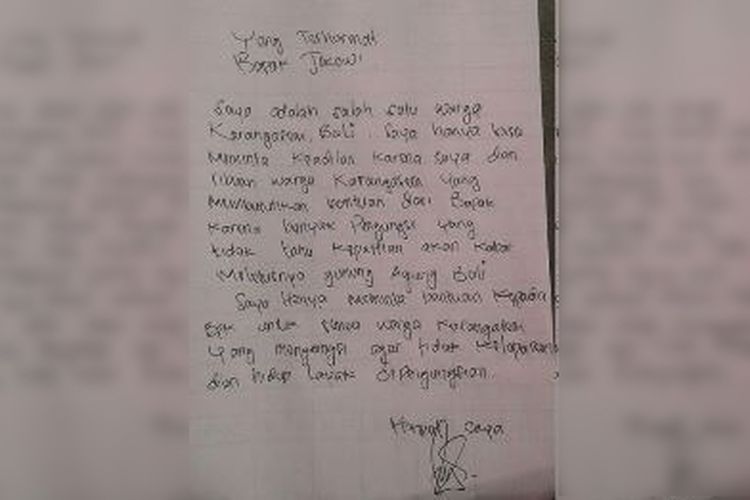 Yang Terhormat
Bapak Jokowi
Saya adalah salah satu warga
Karangasem, Bali. Saya hanya bisa
Meminta keadilan karena saya dan
ribuan warga Karangasem yang
Membutuhkan bantuan dari Bapak
karena banyak Pengungsi yang
tidak tahu kepastian akan kabar
Meletusnya gunung Agung Bali
Saya Hanya meminta bantuan kepada
Bpk untuk semua warga Karangasem
yang mengungsi agar tidak kelaparan
dan hidup Layak di Pengungsian.
saya